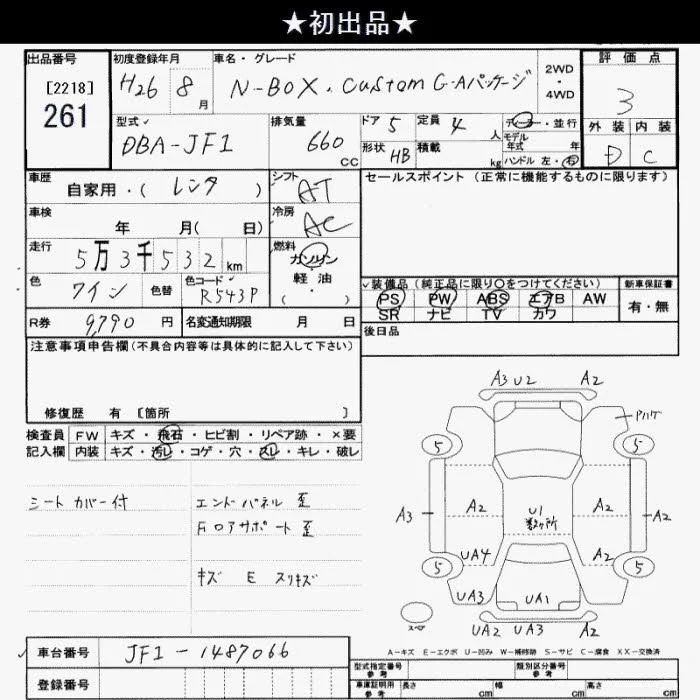 ★初出品★
出品番号
[2218]
261
初度登録年月
H26 8月
車名・グレード
N-BOX. Custom G-Aパッケージ
2WD・4WD
評価点
3
型式
DBA-JF1
排気量
660 CC
ドア 5
定員 4 人
ディーラー・並行
モデル年式 年
形状 HB
積載 kg
ハンドル 左・右
外装 内装
D C
車歴
自家用・(レンタ)
シフト AT
セールスポイント (正常に機能するものに限ります)
車検
年 月( 日)
冷房 AC
走行
5万3千532km
燃料
ガソリン
軽油
(・)
色
ワイン
色替
色コード
R543P
装備品 (純正品に限り○をつけてください)
新車保証書
PS PW ABS エアB AW
SR ナビ TV カワ
有・無
R券 9,790 円
名変通知期限 月 日
後日品
注意事項申告欄(不具合内容等は具体的に記入して下さい)
修復歴 有 [箇所 ]
検査員記入欄
FW キズ・飛石・ヒビ割・リペア跡・×要
内装 キズ・汚レ・コゲ・穴・スレ・キレ・破レ
シートカバー付
エンドパネル歪
Fロアサポート歪
キズ E スリキズ
A3 U2 A2
Pハゲ
5 5
A3 A2 A2 A2
U1
数ヶ所
UA4 A2
5 5
UA3 UA1
スペア
UA2 UA3 A2
A-キズ E-エクボ U-凹み W-補修跡 S-サビ C-腐食 XX-交換済
車台番号
JF1-1487066
登録番号
型式指定番号 参考
類別区分番号 参考
車庫証明用 参考
長さ cm 幅 cm 高さ cm